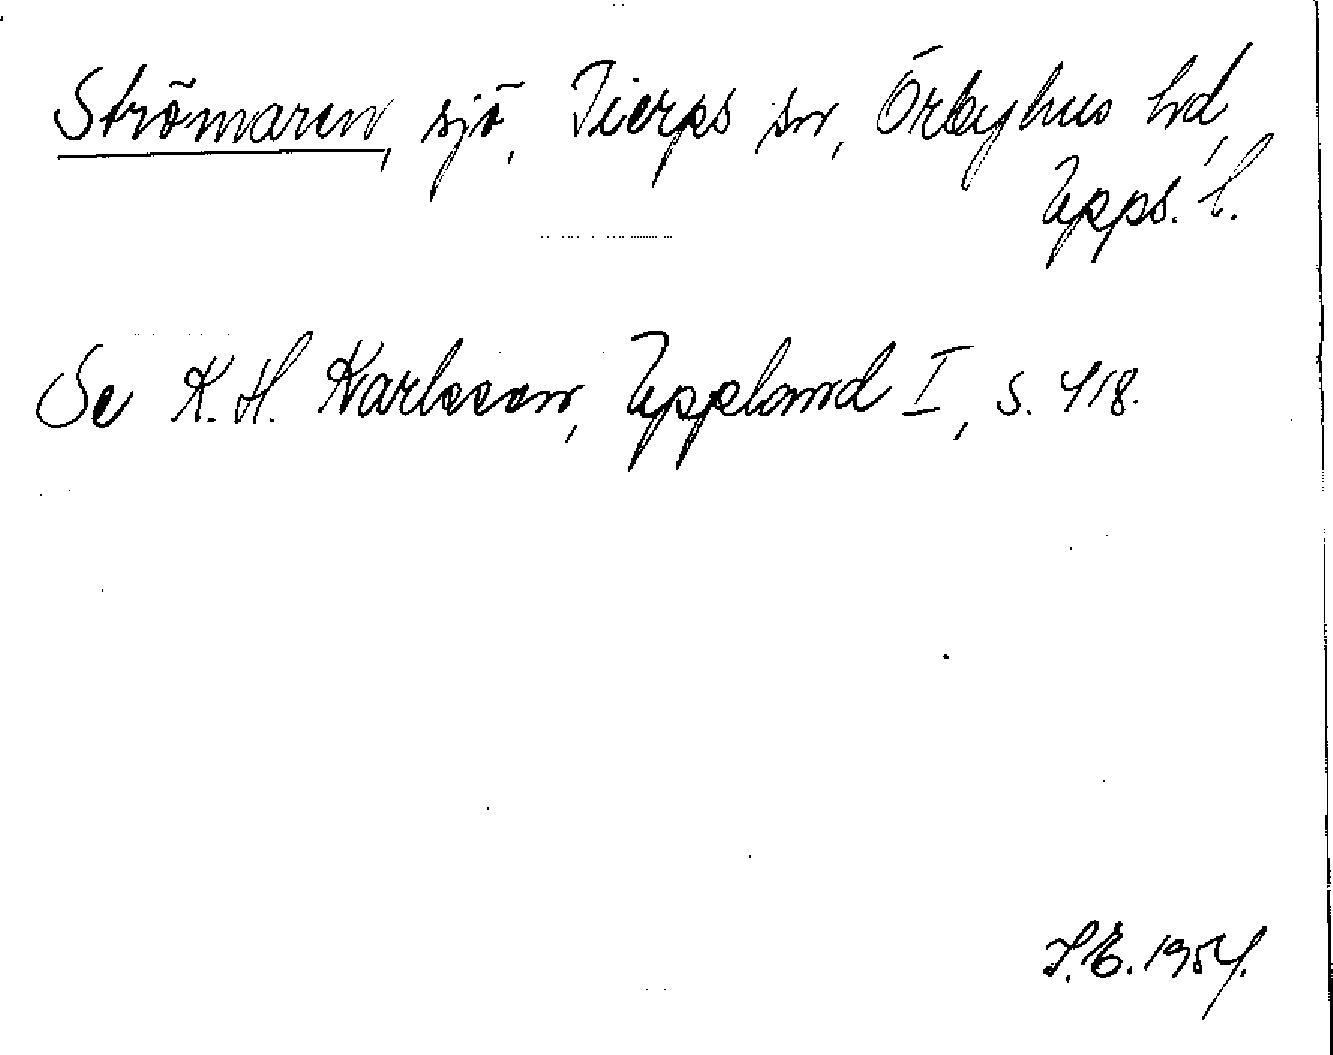 Strömaren, sjö, Tierps sn, Örbyhus hd,
Upps. l.
Se K. H. Karlsson, Uppland I, s. 418.
S.E. 1954.